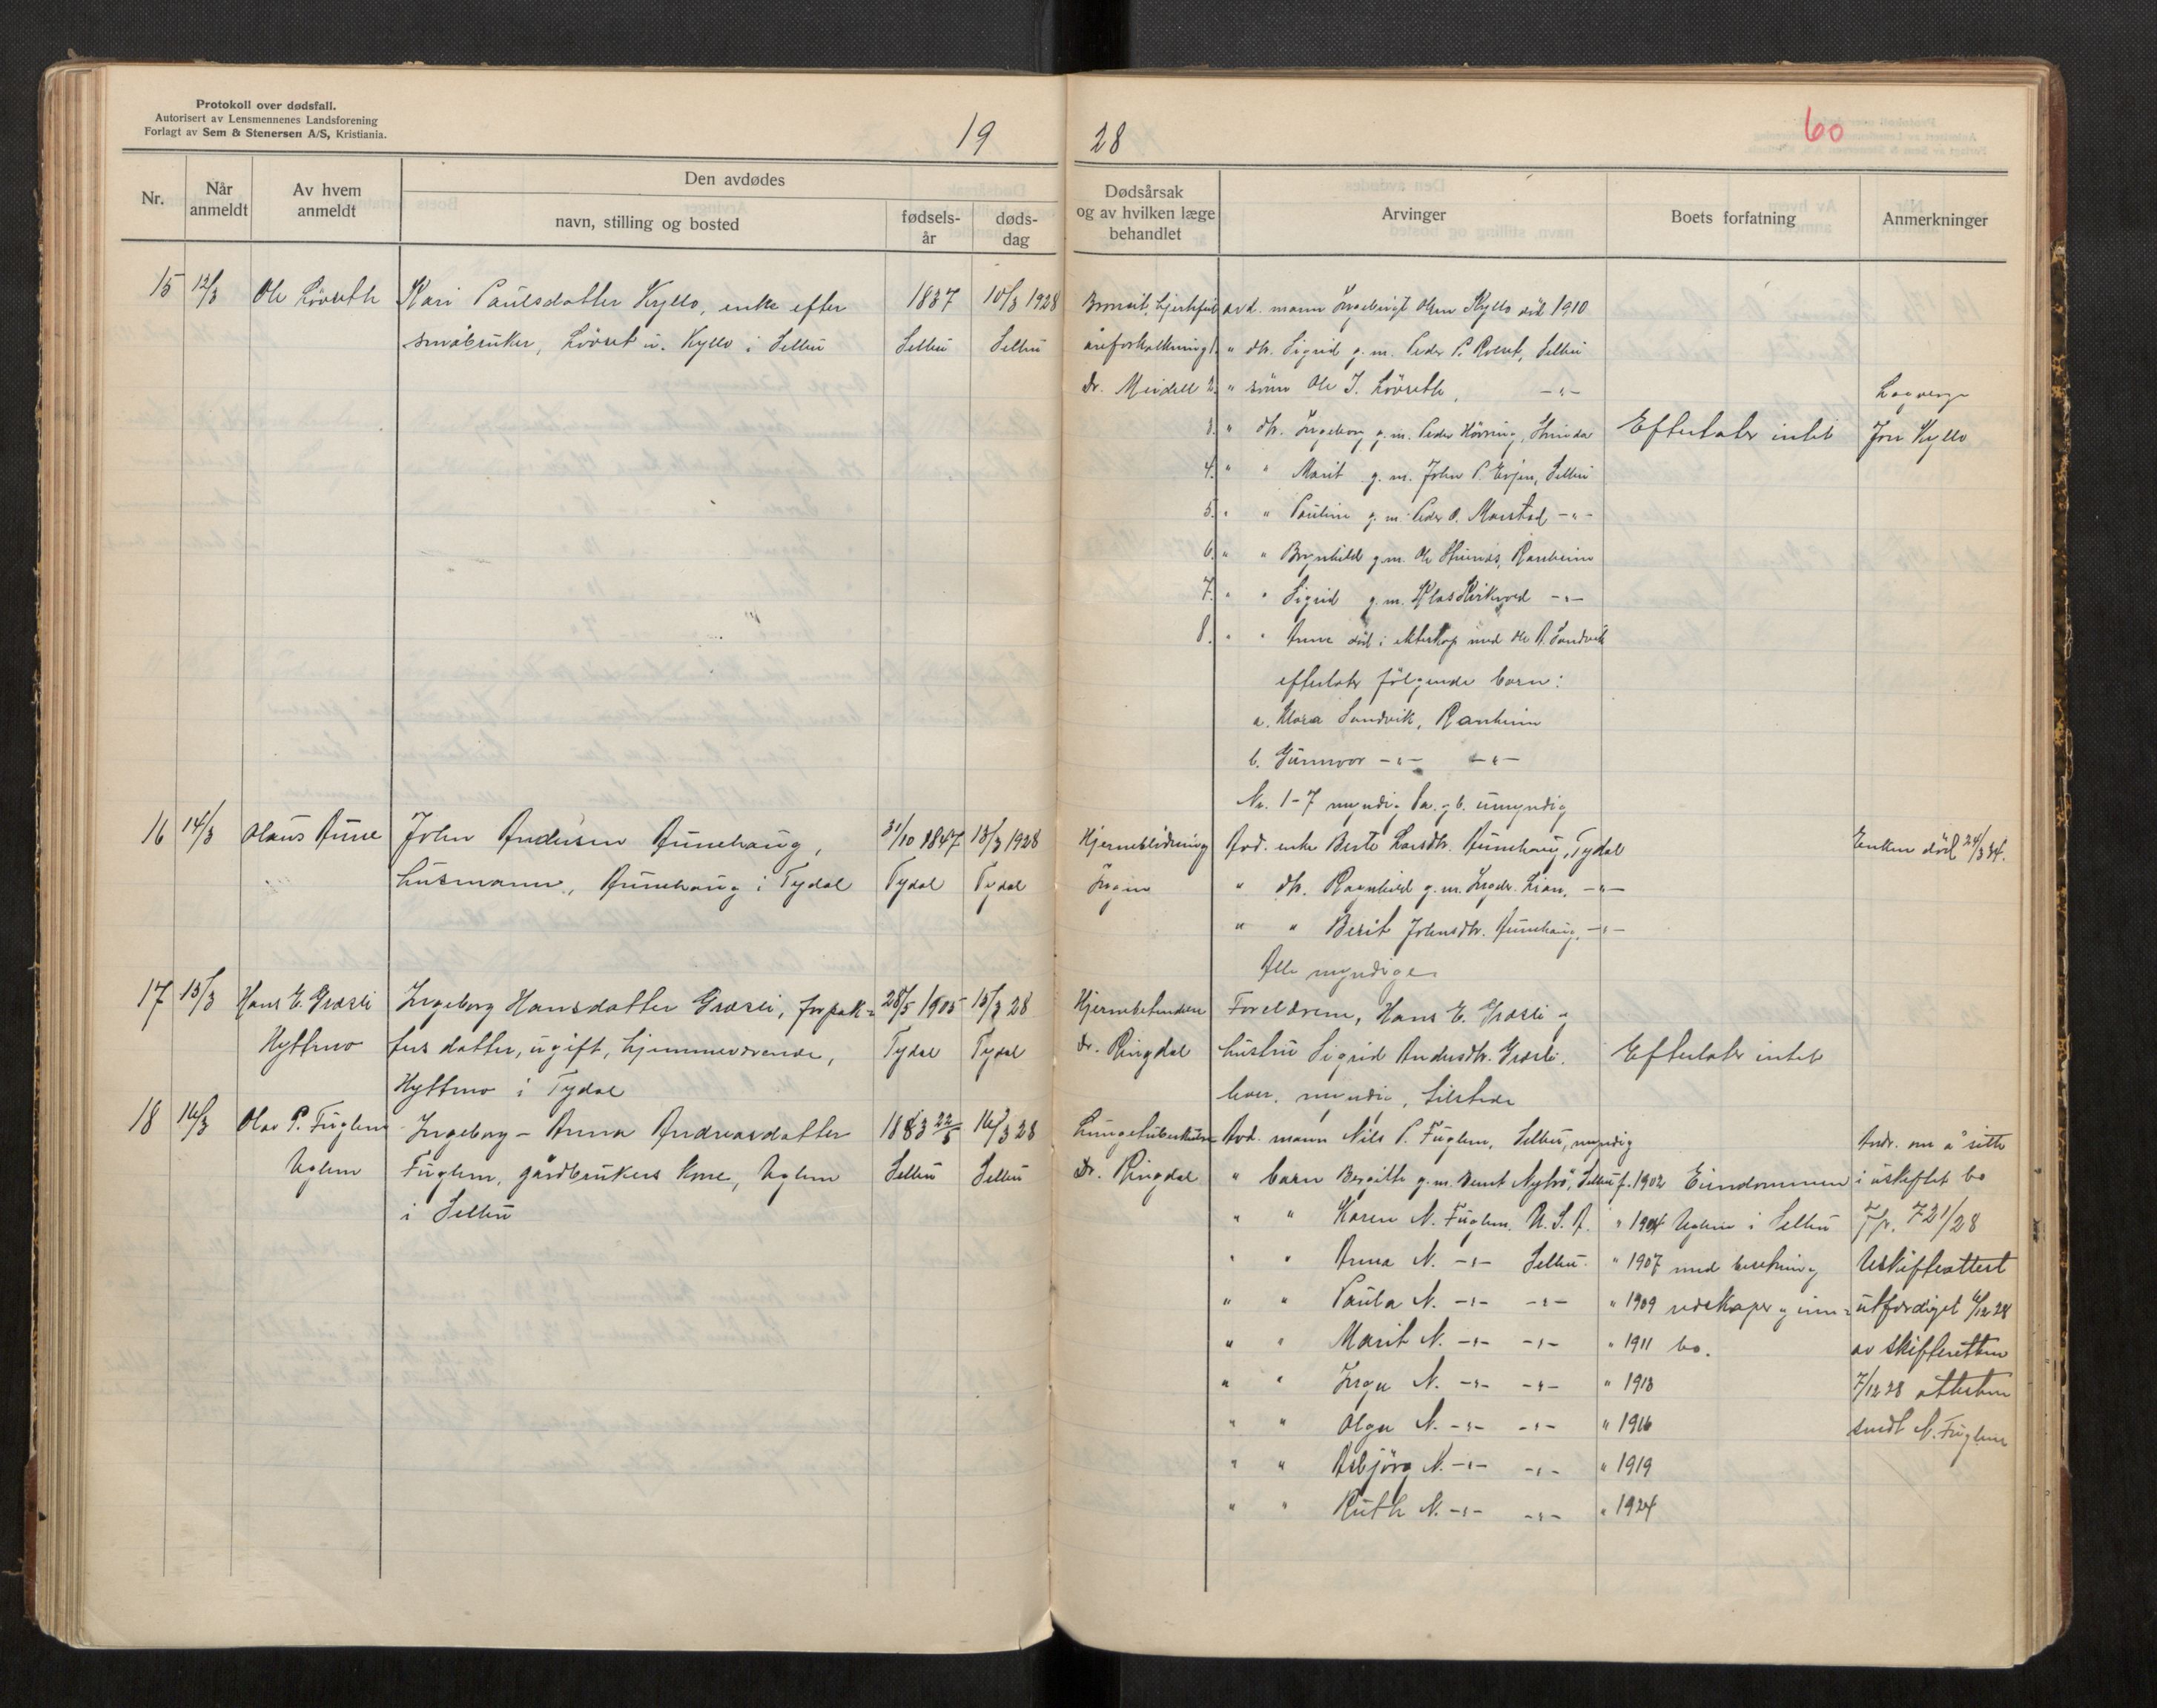 Protokoll over dødsfall.
Autorisert av Lensmennenes Landsforening
Forlagt av Sem & Stenersen A/S, Kristiania.
19 28
60
Nr.
Når anmeldt
Av hvem anmeldt
Den avdødes
navn, stilling og bosted
fødsels-år
døds-dag
Dødsårsak og av hvilken læge behandlet
Arvinger
Boets forfatning
Anmerkninger
15 12/3 Ole Lövseth Kari Paulsdatter Kyllo, enke efter 1837 10/3 1928
småbruker, Lövset u. Kyllo i Selbu Selbu Selbu
åreforkalkning
Dr. Meidell
avd. mann Ingebrigt Olsen Kyllo död 1910
1. " dtr. Sigrid g. m. Peder P. Rolset, Selbu
2. " sönn Ole I. Lövseth, -"-
3. " dtr. Ingeborg g. m. Peder Hövring, Strinda
4. " " Marit g. m. John P. Evjen, Selbu
5. " " Pauline g. m. Peder O. Marstad -"-
6. " " Brynhild g. m. Ole Ranheim
7. " " Sigrid g. m. Klas Kirkvold -"-
8. " " Anne död i ekteskap med Ole A. Sandvik
efterlater fölgende barn:
a. Klara Sandvik, Ranheim
b. Gunnvor -"- -"-
Nr. 1-7 myndig 8a. og b. umyndig
Efterlater intet
Lagverge
Jon Kyllo
16 14/3 Olaus Aune John Andersen Aunehaug, 31/10 1847 13/3 1928
husmann, Aunehaug i Tydal Tydal Tydal
Hjerneblödning
Ingen
Avd. enke Berte Larsdtr. Aunehaug, Tydal
" dtr. Ragnhild g. m. Ingebr. Lian, -"-
" " Berit Johnsdtr. Aunehaug, -"-
Alle myndige
Enken död 24/3 34.
17 15/3 Hans E. Græsli Ingeborg Hansdatter Græsli, forpak= 28/5 1905 15/3 28
Hyttmo ters datter, ugift, hjemmeværende, Tydal Tydal
Hyttmo i Tydal
Hjernebetendelse
Dr. Ringdal
Foreldrene, Hans E. Græsli og
hustru Sigrid Andersdtr. Græsli.
hver. myndig, tilstede
Efterlater intet
18 16/3 Olav P. Fuglem Ingeborg-Anna Andreasdatter 1883 22/5 16/3 28
Uglem Fuglem, gårdbrukers kone, Uglem Selbu Selbu
i Selbu
Lungetuberkulose
Dr. Ringdal
Avd. mann Nils P. Fuglem, Selbu, myndig
" barn Bergitte g. m. Bernt Nybrö, Selbu f. 1902
" " Karen N. Fuglem, U.S.A. " 1904
" " Anna N. -"- Selbu. " 1907
" " Paula N. -"- -"- " 1909
" " Marit N. -"- -"- " 1911
" " Inga N. -"- -"- " 1913
" " Olga N. -"- -"- " 1916
" " Asbjörg N. -"- -"- " 1919
" " Ruth N. -"- -"- " 1924
Eiendommen
Uglem i Selbu
med besetning
redskaper og inn=
bo.
Andr. om å sitte
i uskiftet bo
721/28
Uskifteattest
utferdiget 6/12 28
av skifteretten
7/12 28 attesten
sendt N. Fuglem